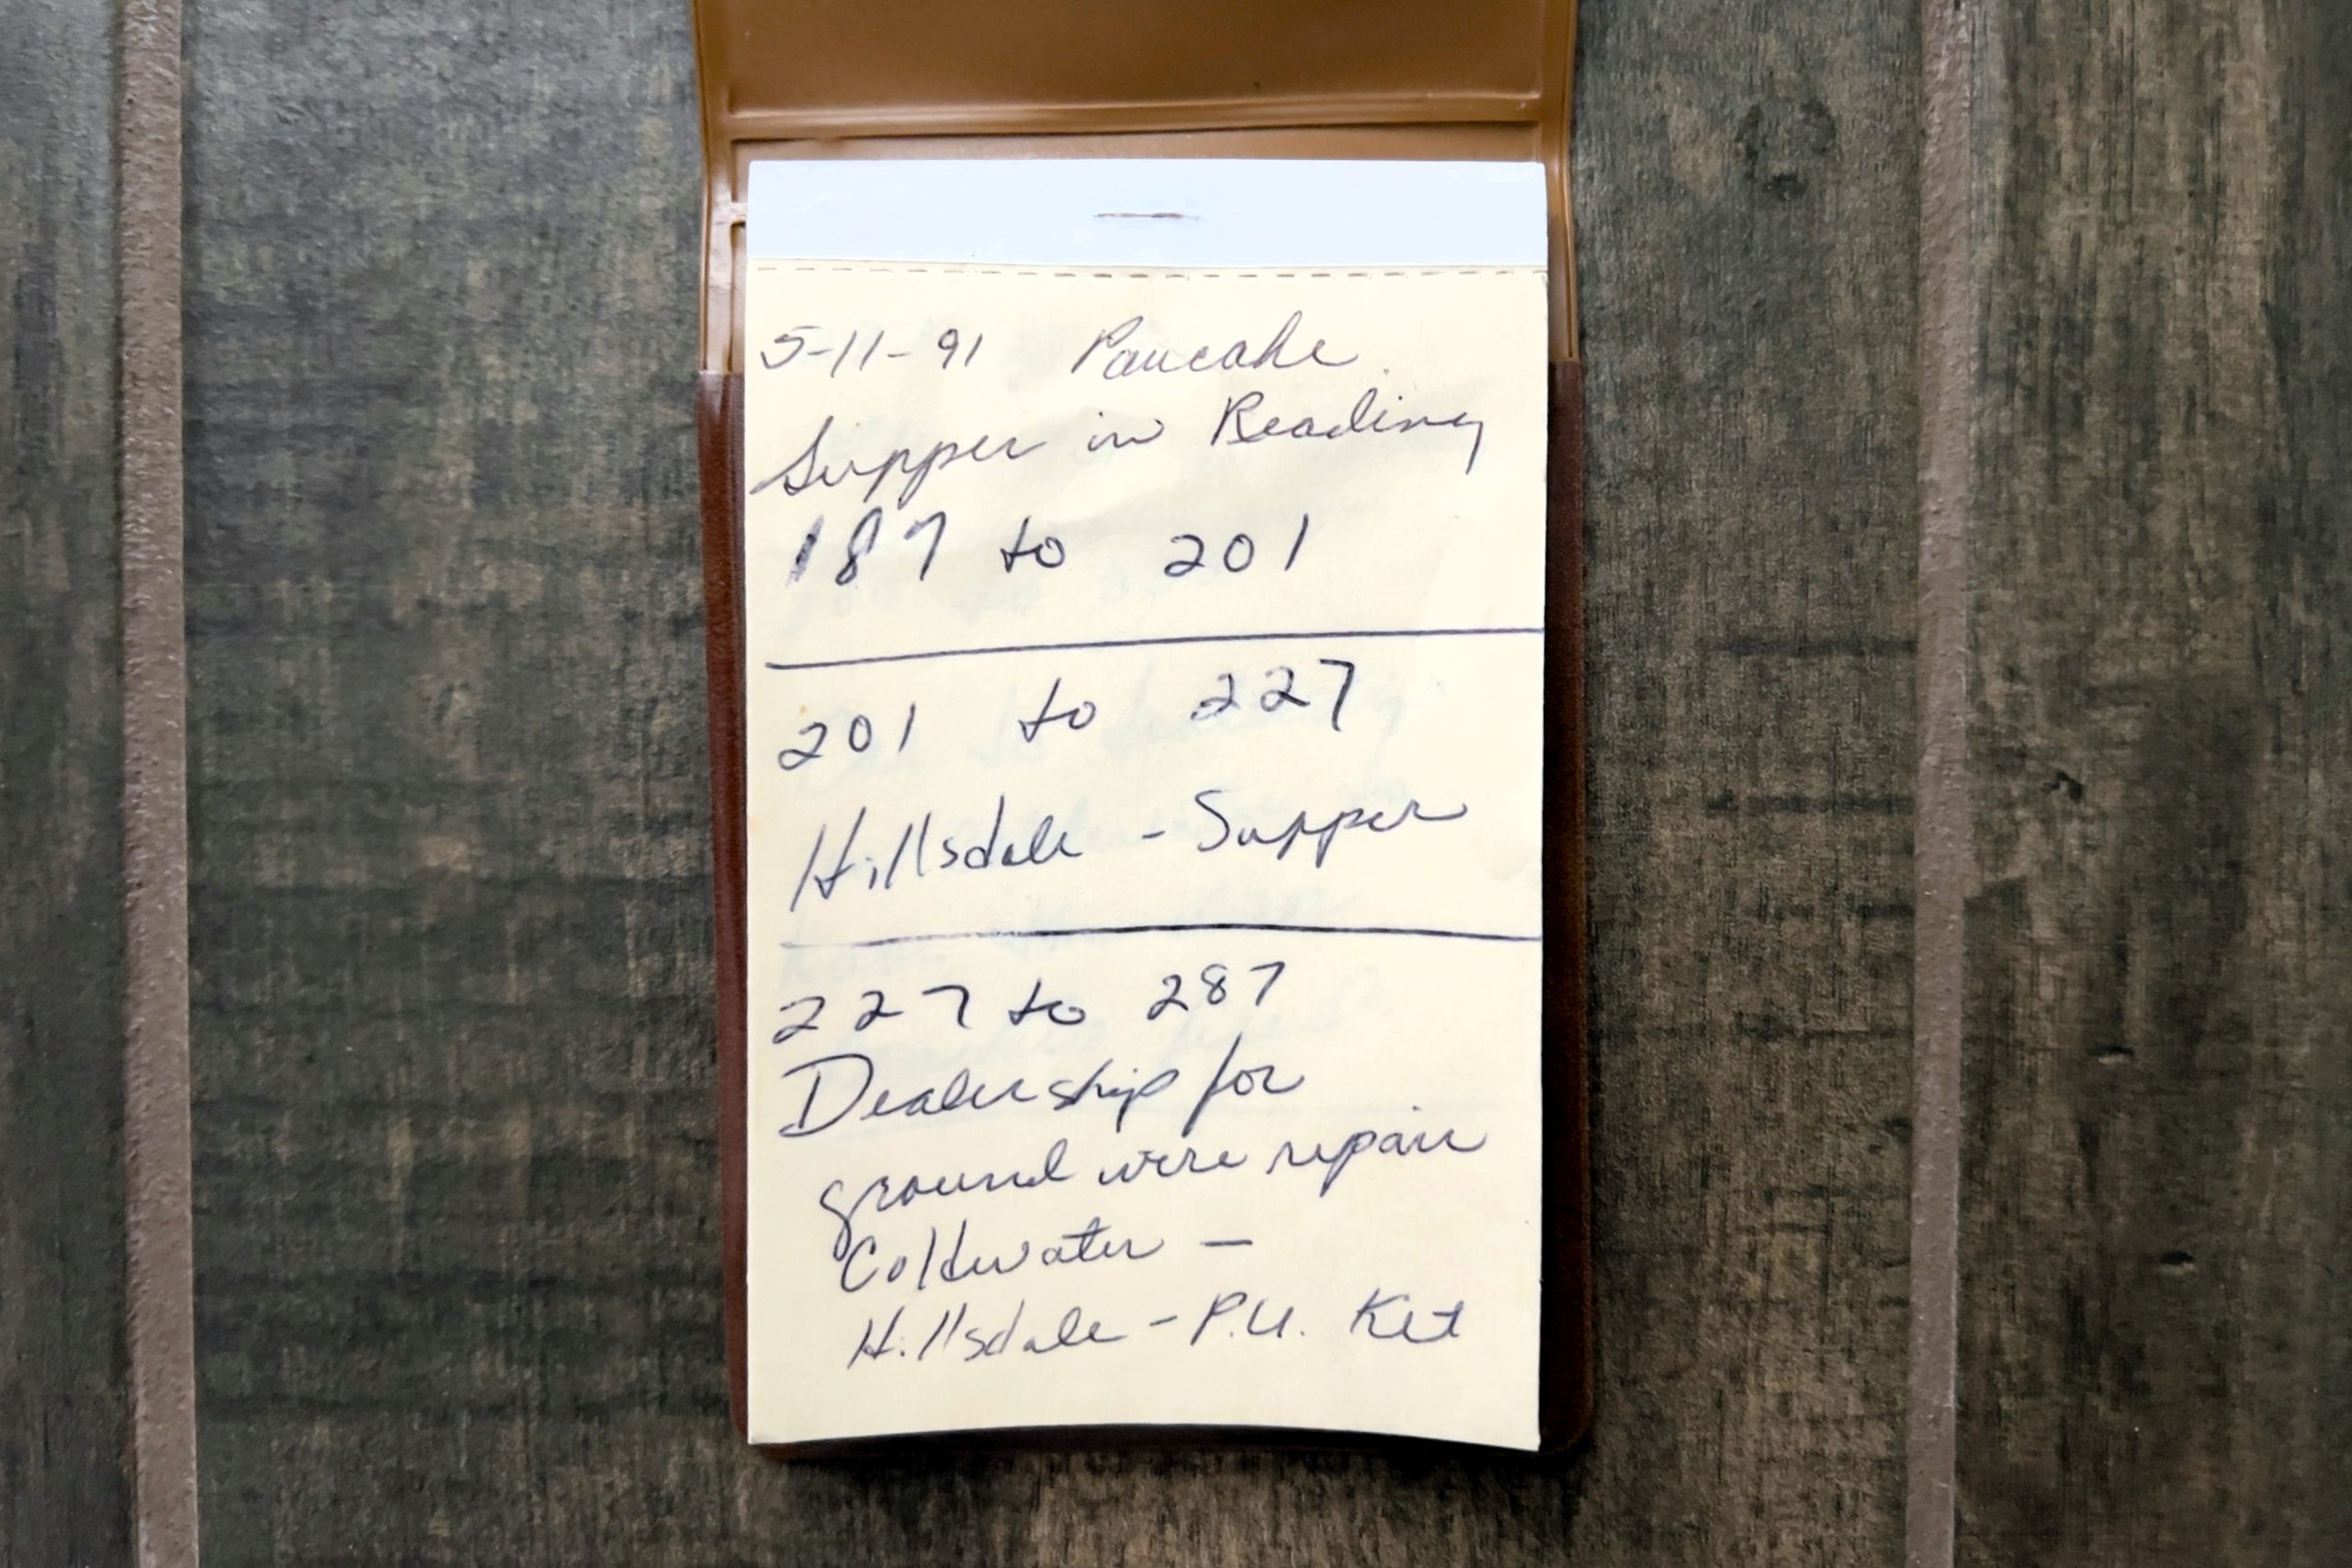 5-11-91 Pancake
Supper in Reading
187 to 201
201 to 227
Hillsdale - Supper
227 to 287
Dealership for
ground wire repair
Coldwater —
Hillsdale - P.U. Kit